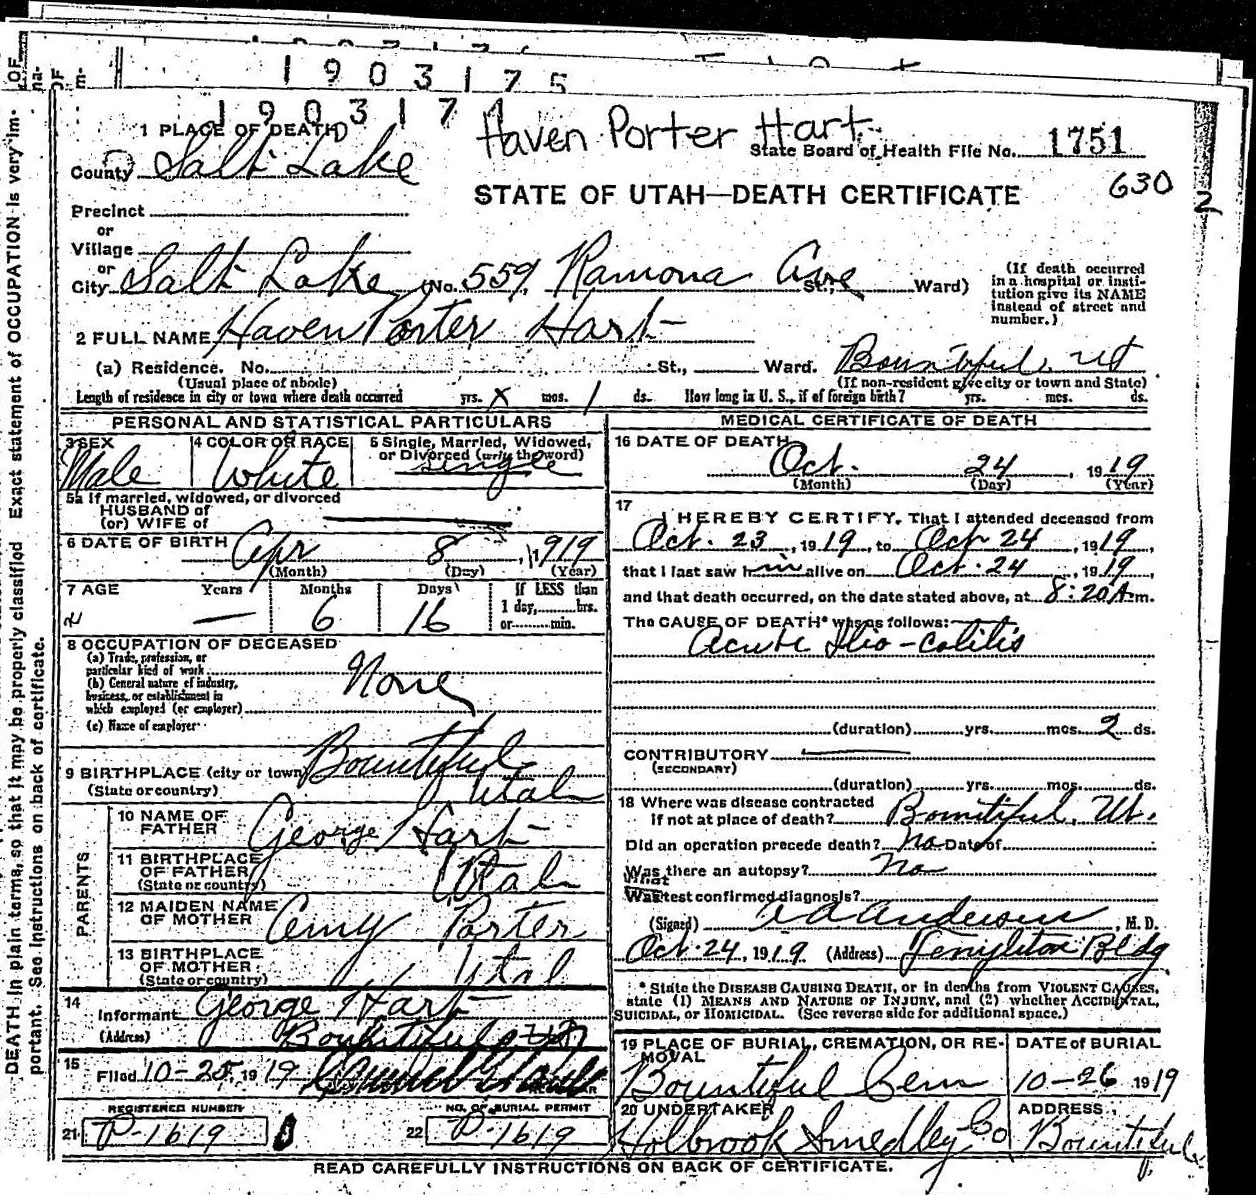 1903175
190317
Haven Porter Hart
1 PLACE OF DEATH
State Board of Health File No. 1751
County Salt Lake
STATE OF UTAH—DEATH CERTIFICATE
630
2
Precinct
or
Village
or
City Salt Lake (No. 559 Ramona Ave St., Ward)
(If death occurred in a hospital or institution give its NAME instead of street and number.)
2 FULL NAME Haven Porter Hart
(a) Residence. No. St., Ward. Bountiful, Ut
(Usual place of abode) (If non-resident give city or town and State)
Length of residence in city or town where death occurred yrs. X mos. 1 ds. How long in U. S., if of foreign birth? yrs. mos. ds.
PERSONAL AND STATISTICAL PARTICULARS
3 SEX Male
4 COLOR OR RACE White
5 Single, Married, Widowed, or Divorced (write the word) Single
5a If married, widowed, or divorced
HUSBAND of
(or) WIFE of
6 DATE OF BIRTH Apr 8, 1919
(Month) (Day) (Year)
7 AGE Years Months Days If LESS than
— 6 16 1 day, hrs.
or min.
8 OCCUPATION OF DECEASED
(a) Trade, profession, or
particular kind of work
(b) General nature of industry,
business, or establishment in
which employed (or employer)
None
(c) Name of employer
9 BIRTHPLACE (city or town) Bountiful
(State or country) Utah
PARENTS
10 NAME OF FATHER George Hart
11 BIRTHPLACE OF FATHER Utah
(State or country)
12 MAIDEN NAME OF MOTHER Amy Porter
13 BIRTHPLACE OF MOTHER Utah
(State or country)
14
Informant George Hart
(Address) Bountiful
15 Filed 10-25, 1919
REGISTERED NUMBER
21 P-1619
NO. OF BURIAL PERMIT
22 P-1619
MEDICAL CERTIFICATE OF DEATH
16 DATE OF DEATH
Oct. 24, 1919
(Month) (Day) (Year)
17
I HEREBY CERTIFY, That I attended deceased from
Oct. 23, 1919, to Oct 24, 1919,
that I last saw him alive on Oct. 24, 1919,
and that death occurred, on the date stated above, at 8:20 A.m.
The CAUSE OF DEATH* was as follows:
Acute Ilio-colitis
(duration) yrs. mos. 2 ds.
CONTRIBUTORY
(SECONDARY)
(duration) yrs. mos. ds.
18 Where was disease contracted
if not at place of death? Bountiful, Ut.
Did an operation precede death? No Date of
Was there an autopsy? No
What test confirmed diagnosis?
(Signed) Anderson, M. D.
Oct. 24, 1919 (Address) Templeton Bldg
* State the DISEASE CAUSING DEATH, or in deaths from VIOLENT CAUSES,
state (1) MEANS AND NATURE OF INJURY, and (2) whether ACCIDENTAL,
SUICIDAL, or HOMICIDAL. (See reverse side for additional space.)
19 PLACE OF BURIAL, CREMATION, OR REMOVAL
Bountiful Cem
DATE of BURIAL
10-26 1919
20 UNDERTAKER
Holbrook Smedley Co
ADDRESS
Bountiful
READ CAREFULLY INSTRUCTIONS ON BACK OF CERTIFICATE.
DEATH in plain terms, so that it may be properly classified Exact statement of OCCUPATION is very im-
portant. See Instructions on back of certificate.